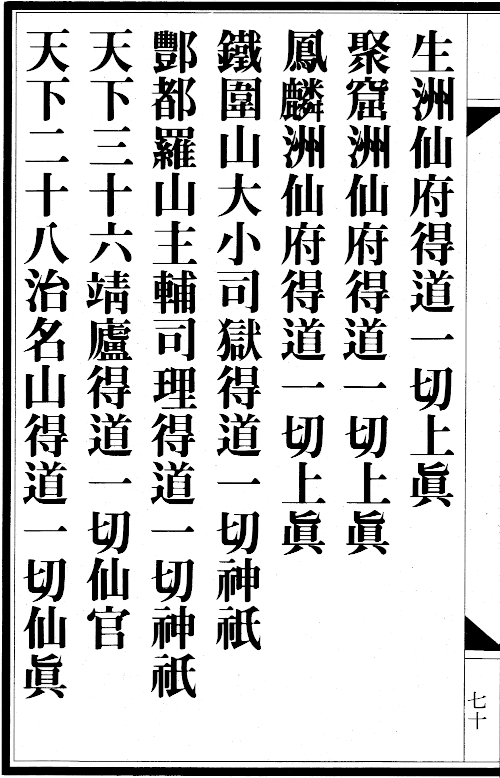 生洲仙府得道一切上眞
聚窟洲仙府得道一切上眞
鳳麟洲仙府得道一切上眞
鐵圍山大小司獄得道一切神祇
酆都羅山主輔司理得道一切神祇
天下三十六靖廬得道一切仙官
天下二十八治名山得道一切仙眞
七十